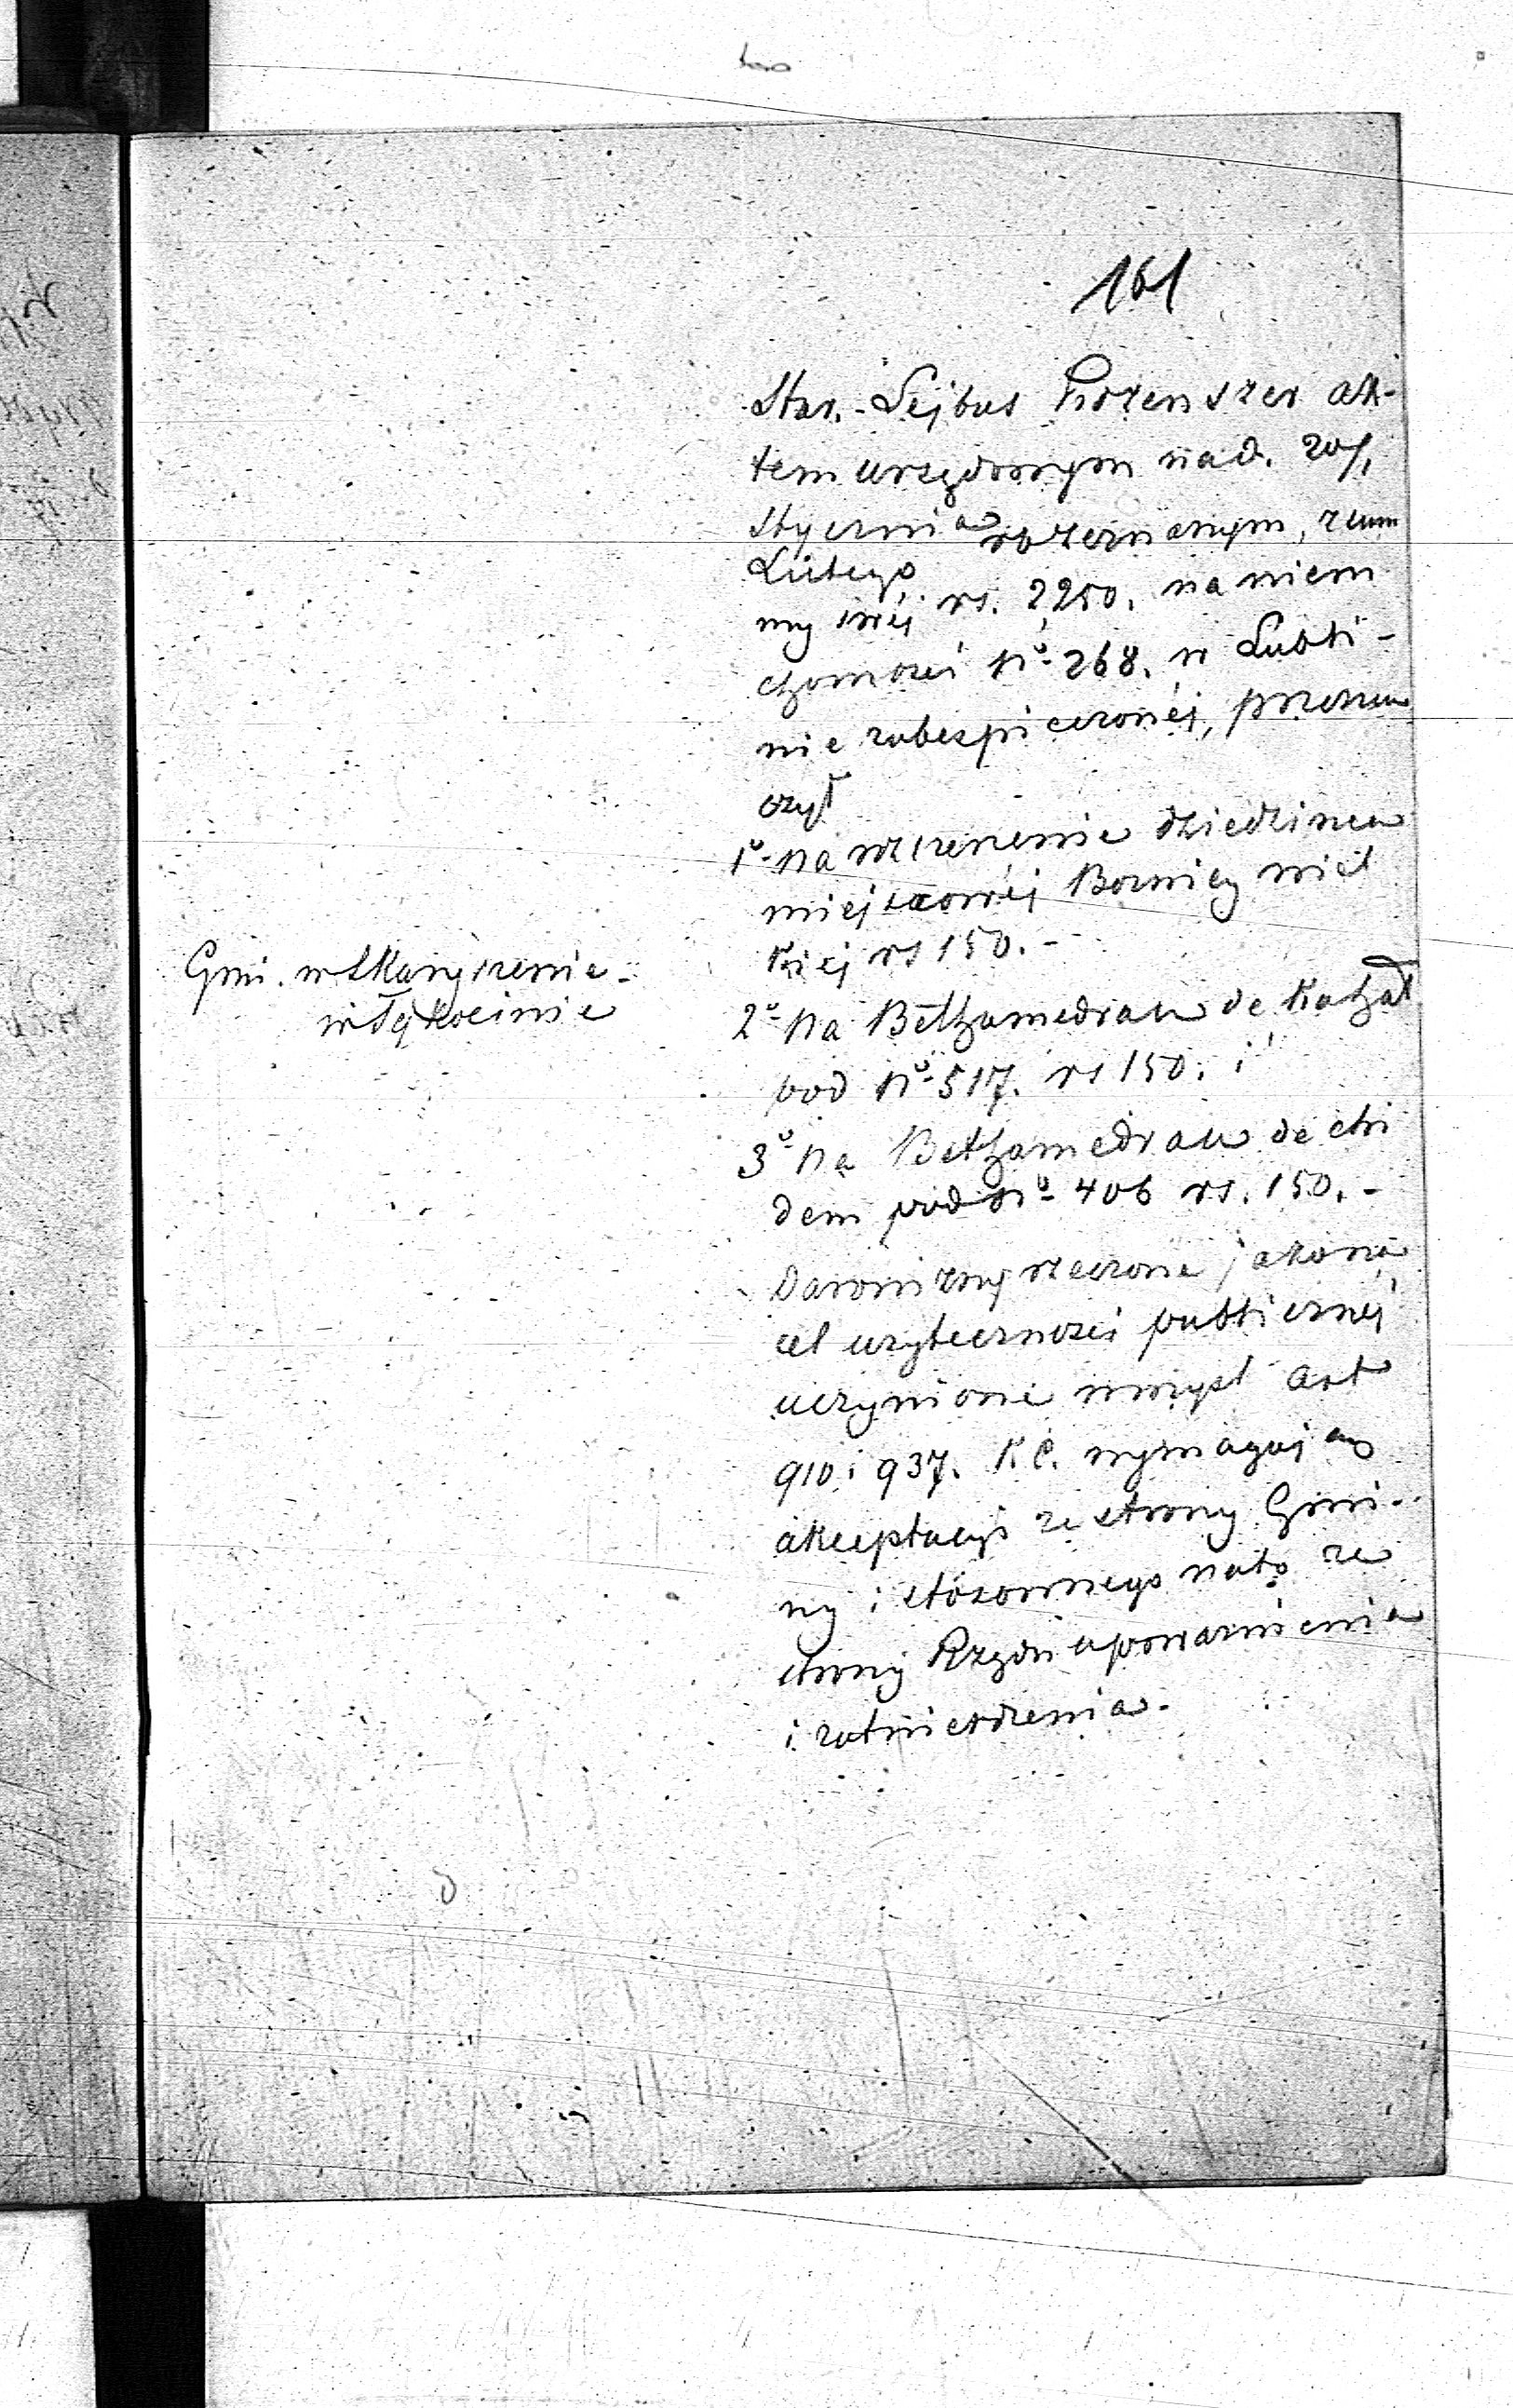 161
Star. Lejbus Fiszenszer ak-
tem urzędowym na d. 20/1
Stycznia
Lutego zeznanym, z sum
my swéj rs. 2250. na nieru
chomości No 268. w Lubli-
nie zabespieczonéj, przezna
czył
1o na wzniesienie dziedzinca
miejscowéj Boznicy wiel
kiej rs 150.-
Gmi. w
2o Na Bethamedrasz de Kahał
pod No 517. rs 150. i
3o Na Bethamedrasz de chi
dem pod No 406 rs. 150.-
Darowizny rzeczone jako na
cel użyteczności publicznéj
uczynione w myśl art
910 i 937. K C. wymagają
akceptacyi ze strony Gmi-
ny i stósownego na to ze
strony Rządu upoważnienia
i zatwierdzenia.